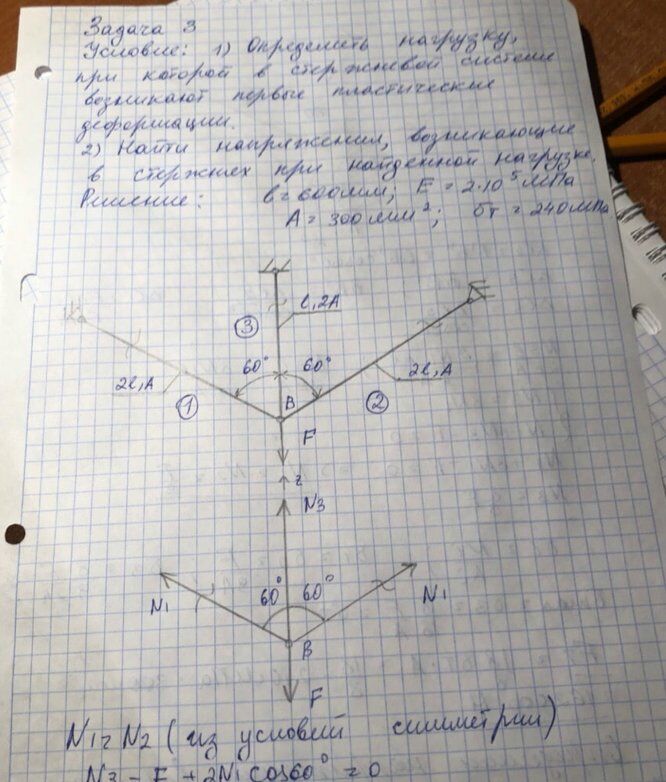 Задача 3
Условие: 1) Определить нагрузку,
при которой в стержневой системе
возникают первые пластические
деформации.
2) Найти напряжения, возникающие
в стержнях при найденной нагрузке.
Решение: в = 600мм; E = 2·10⁵ МПа
A = 300мм²; бт = 240МПа
3
l, 2A
60° 60°
2l, A
2l, A
1
B
2
F
z
N3
60° 60°
N1
N1
B
F
N1 = N2 (из условий симметрии)
N3 - F + 2N1 cos60° = 0